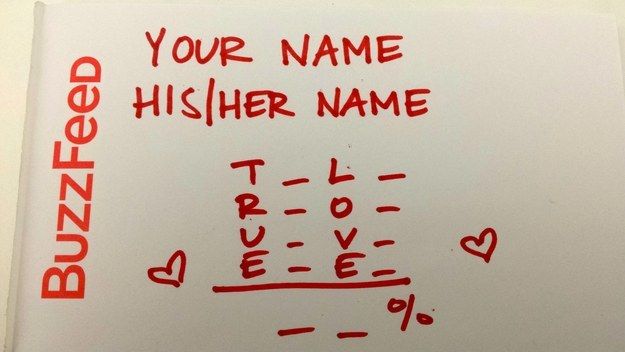 BuzzFeed
YOUR NAME
HIS/HER NAME
T _ L _
R _ O _
U _ V _
E _ E _
_ _ %